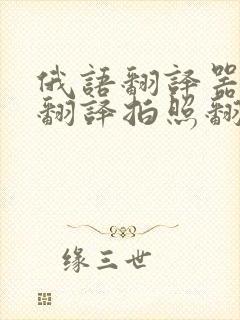 俄語翻譯器
翻譯拍照翻
缘三世